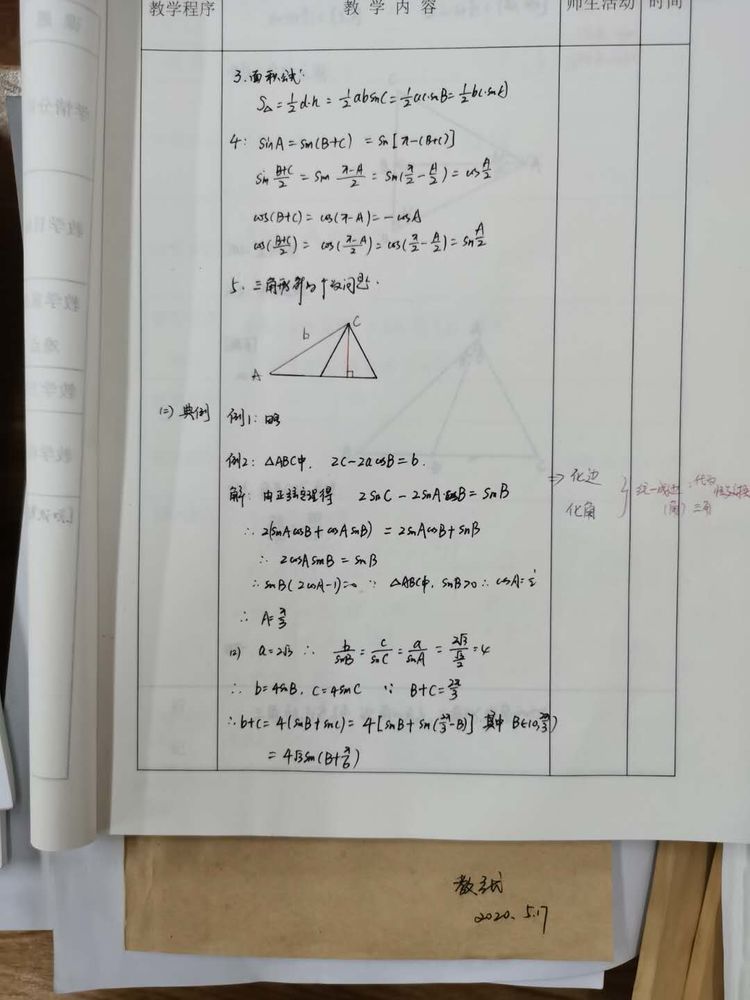 教学程序 教学内容 师生活动 时间
3.面积公式:
S△=½d·h=½absinC=½acsinB=½bcsinA
4: sinA=sin(B+C) =sin[π-(B+C)]
sin(B+C)/2=sin(π-A)/2=sin(π/2-A/2)=cosA/2
cos(B+C)=cos(π-A)=-cosA
cos(B+C)/2=cos(π-A)/2=cos(π/2-A/2)=sinA/2
5. 三角形解的个数问题.
C
b
A
(二) 典例
例1: 略
例2: △ABC中, 2c-2acosB=b.
解: 由正弦定理得 2sinC-2sinAcosB=sinB
∴ 2(sinAcosB+cosAsinB)=2sinAcosB+sinB
∴ 2cosAsinB=sinB
∴sinB(2cosA-1)=0 ∵ △ABC中, sinB>0∴cosA=½
∴ A=π/3
(2) a=2√3 ∴ b/sinB=c/sinC=a/sinA=2√3/(√3/2)=4
∴ b=4sinB, c=4sinC ∵ B+C=2π/3
∴b+c=4(sinB+sinC)=4[sinB+sin(2π/3-B)] 其中B∈(0,2π/3)
=4√3sin(B+π/6)
⇒ 化边
化角
统一成边
(角)
三角
2020.5.17